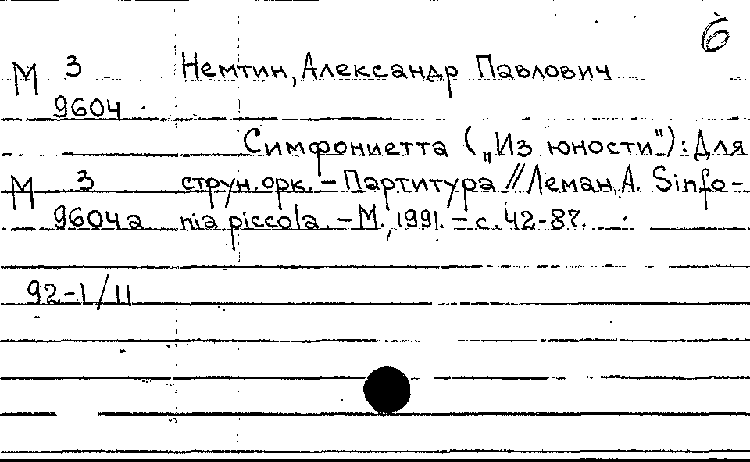 6
М 3 Немтин, Александр Павлович
9604
Симфониетта („Из юности"): Для
М 3 струн. орк. – Партитура // Леман, А. Sinfo-
9604а nia piccola. – М., 1991. – с. 42-87.
92-1/11